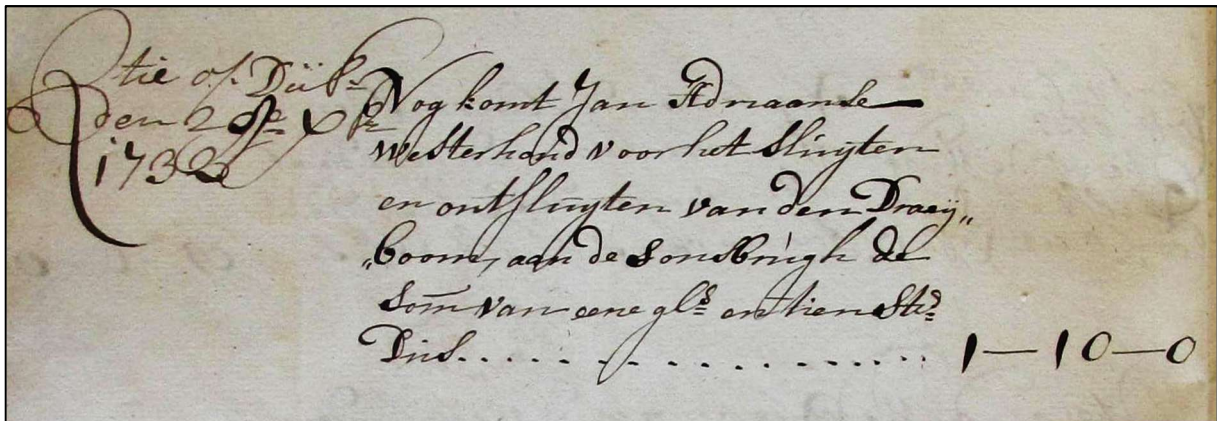 Qtie of Dijk
den 28e Xbr
1732
Nog komt Jan Adriaanse
Westerhand voor het sluyten
en ontsluyten van den Draeij„
„boom, aan de Sonsbrugh de
Som van eene gls en tien Sts
Dus.................. 1—10—0